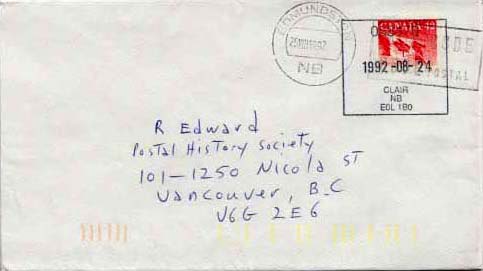 EDMUNDSTON
25 VIII 1992
NB
CANADA
CODE
POSTAL
1992-08-24
CLAIR
NB
E0L 1B0
R Edward
Postal History Society
101-1250 Nicola ST
Vancouver, B.C
V6G 2E6